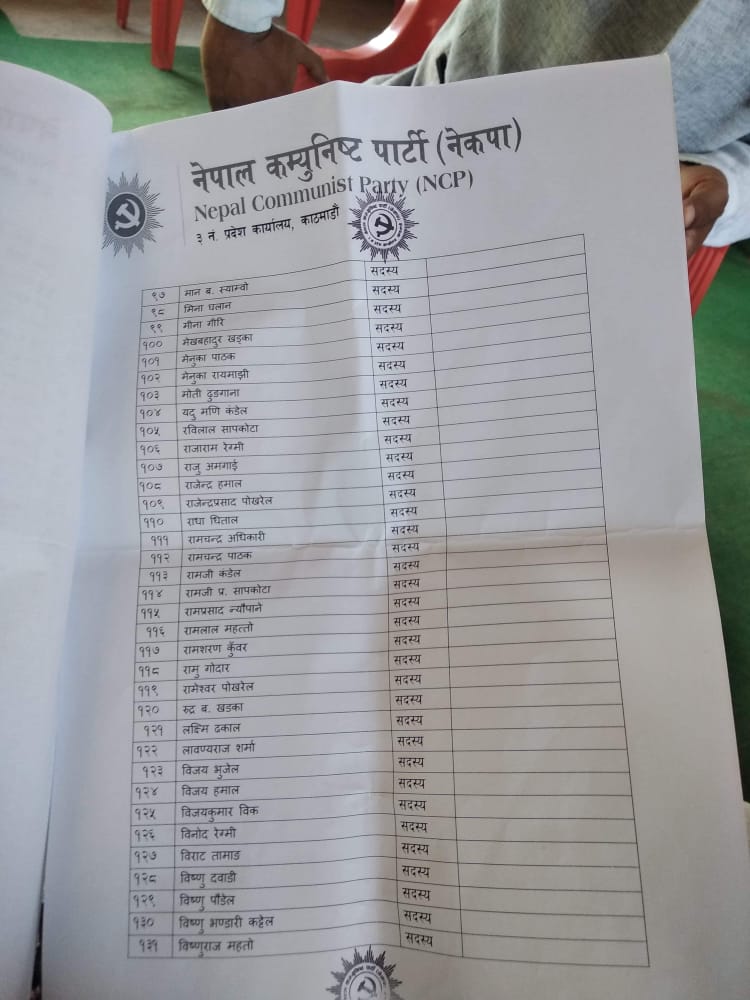 नेपाल कम्युनिष्ट पार्टी (नेकपा)
Nepal Communist Party (NCP)
३ नं. प्रदेश कार्यालय, काठमाडौं
९७ मान ब. स्याम्वो सदस्य
९८ मिना घलान सदस्य
९९ मीना गौरि सदस्य
१०० मेखबहादुर खड्का सदस्य
१०१ मेनुका पाठक सदस्य
१०२ मेनुका रायमाझी सदस्य
१०३ मोती ढुडगाना सदस्य
१०४ यदु मणि कंडेल सदस्य
१०५ रविलाल सापकोटा सदस्य
१०६ राजाराम रेग्मी सदस्य
१०७ राजु अमगाई सदस्य
१०८ राजेन्द्र हमाल सदस्य
१०९ राजेन्द्रप्रसाद पोखरेल सदस्य
११० राधा घिताल सदस्य
१११ रामचन्द्र अधिकारी सदस्य
११२ रामचन्द्र पाठक सदस्य
११३ रामजी कंडेल सदस्य
११४ रामजी प्र. सापकोटा सदस्य
११५ रामप्रसाद न्यौपाने सदस्य
११६ रामलाल महत्तो सदस्य
११७ रामशरण कुँवर सदस्य
११८ रामु गोदार सदस्य
११९ रामेश्वर पोखरेल सदस्य
१२० रुद्र ब. खडका सदस्य
१२१ लक्ष्मि ढकाल सदस्य
१२२ लावण्यराज शर्मा सदस्य
१२३ विजय भुजेल सदस्य
१२४ विजय हमाल सदस्य
१२५ विजयकुमार विक सदस्य
१२६ विनोद रेग्मी सदस्य
१२७ विराट तामाङ सदस्य
१२८ विष्णु दवाडी सदस्य
१२९ विष्णु पौडेल सदस्य
१३० विष्णु भण्डारी कट्टेल सदस्य
१३१ विष्णुराज महतो सदस्य